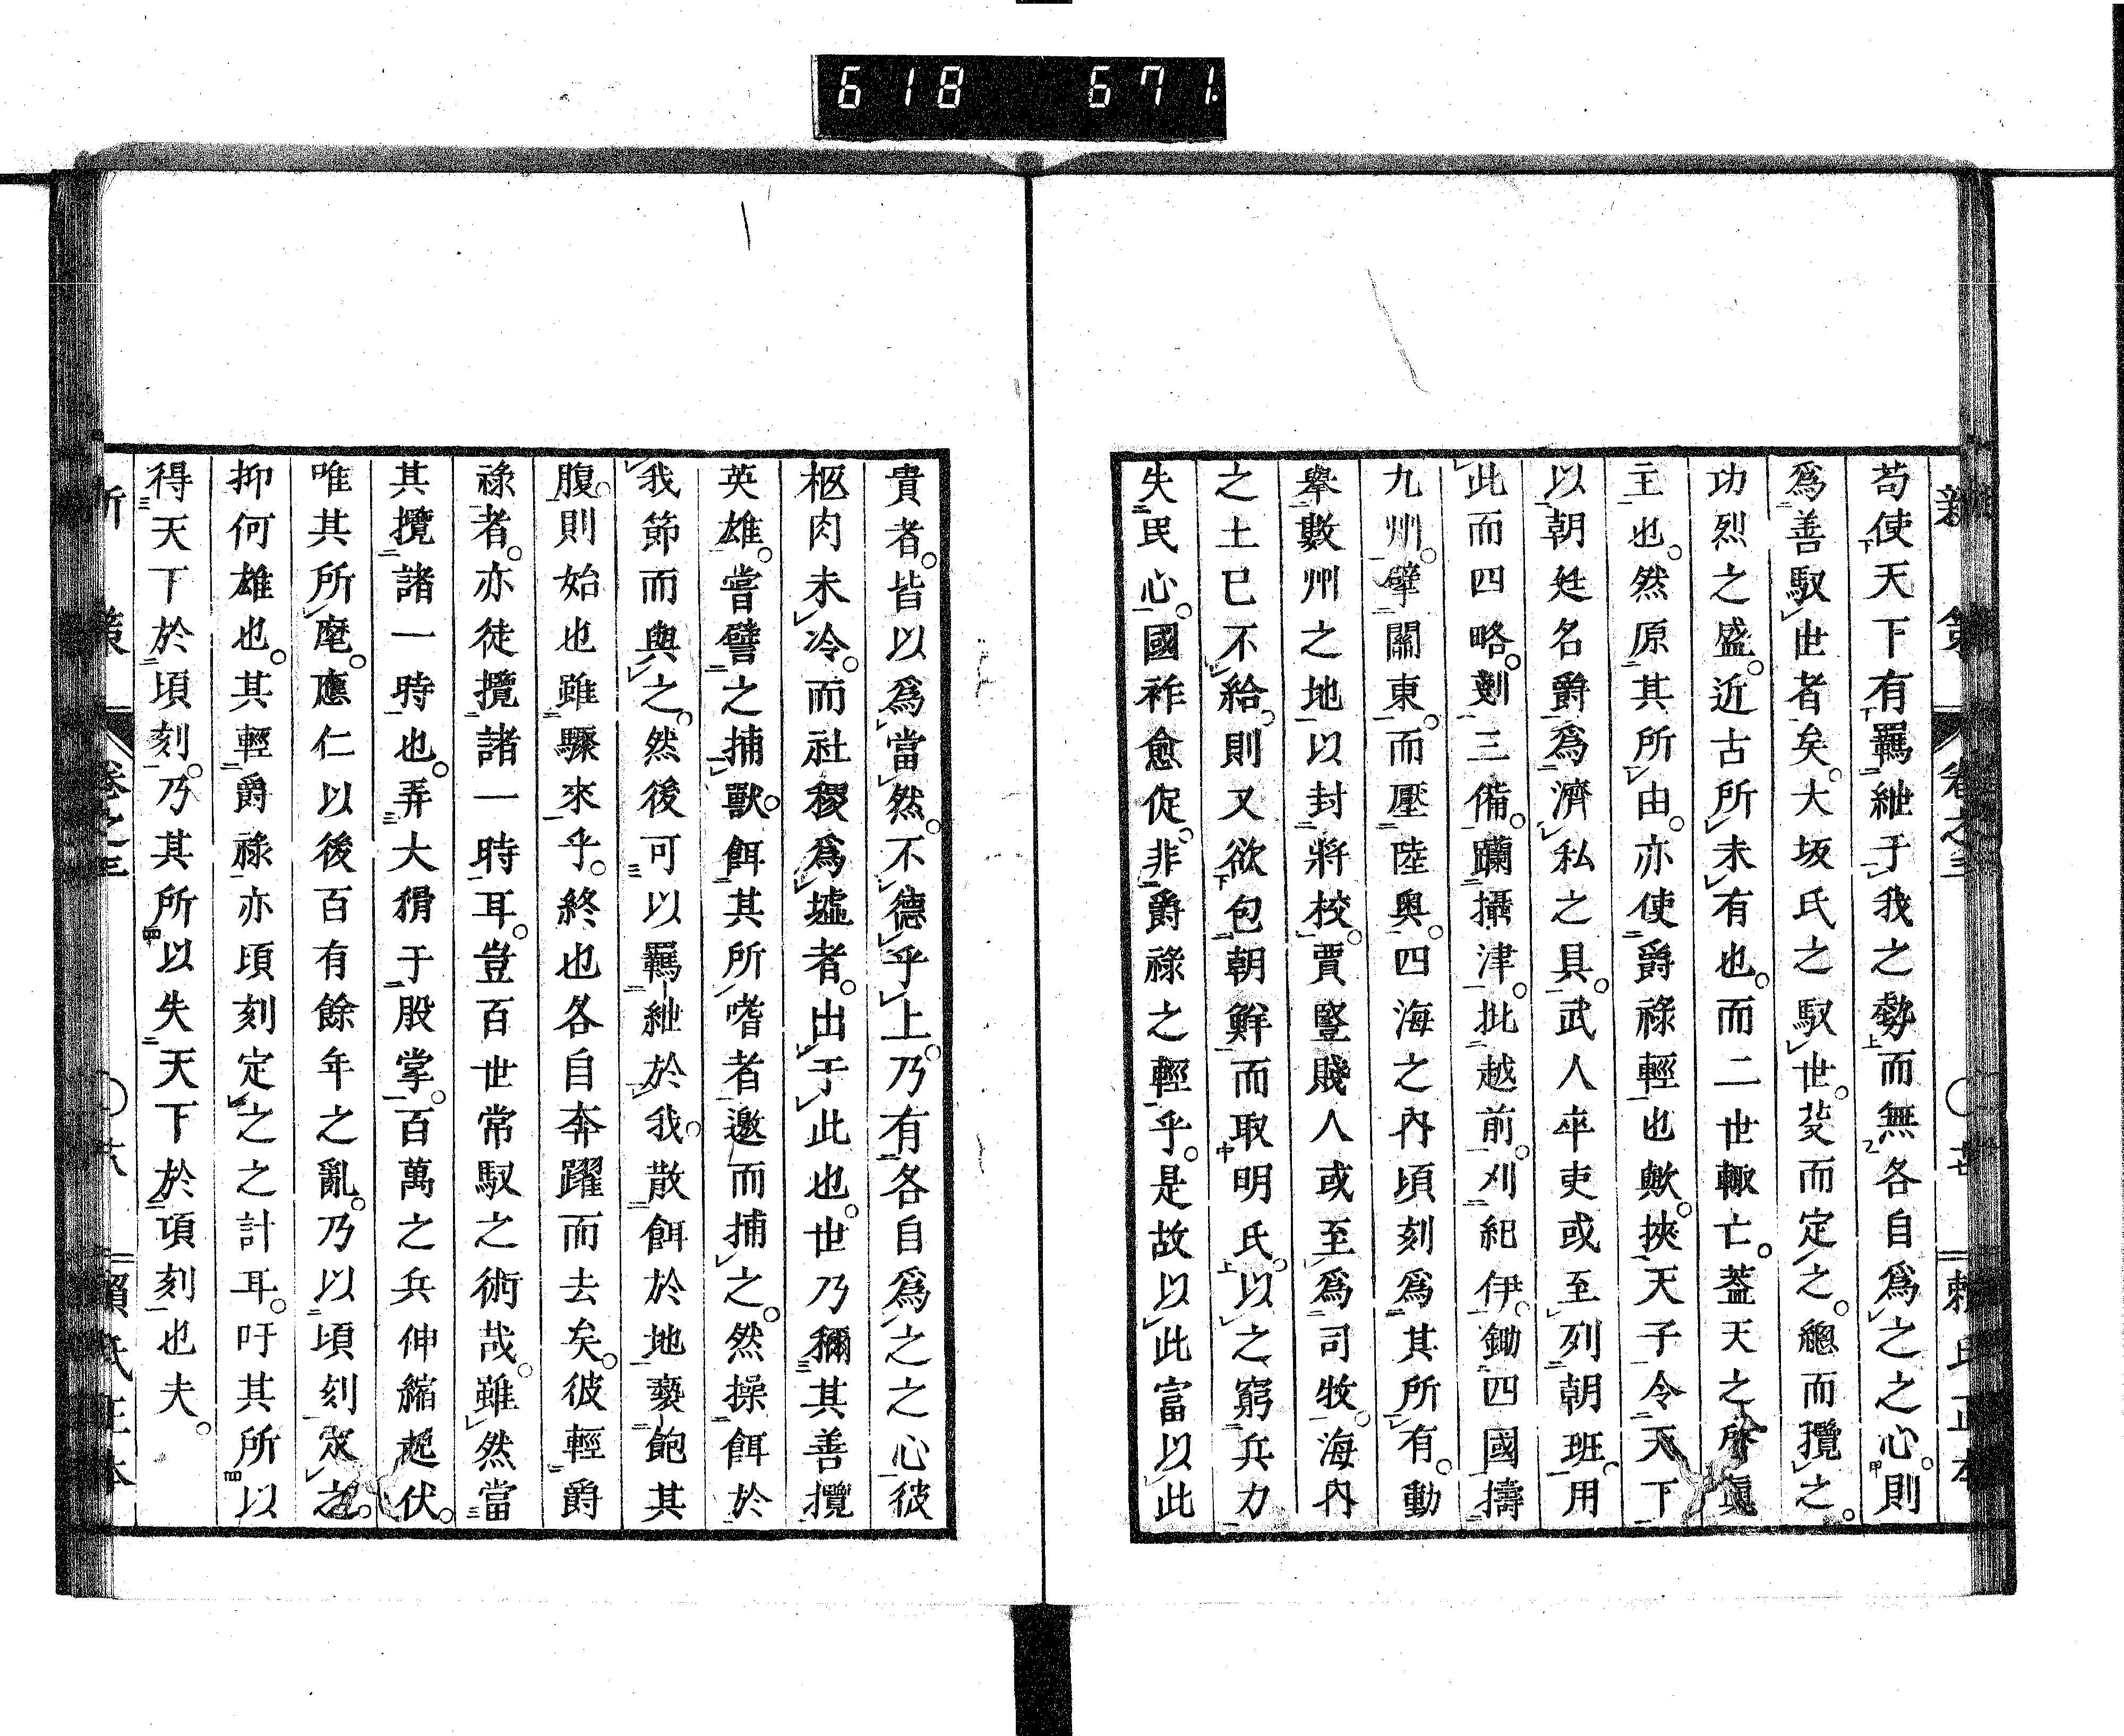 618 671
新策 卷之三 賴氏正本
苟使天下有羈紲于我之勢而無各自爲之之心則
爲善馭世者矣大坂氏之馭世芟而定之總而攬之
功烈之盛近古所未有也而二世輙亡葢天之所眞
主也然原其所由亦使爵祿輕也歟挾天子令天下
以朝廷名爵爲濟私之具武人卒吏或至列朝班用
此而四略劃三備躙攝津批越前刈紀伊鋤四國擣
九州擘關東而壓陸奥四海之內頃刻爲其所有動
舉數州之地以封將校賈豎賤人或至爲司牧海內
之土已不給則又欲包朝鮮而取明氏以之窮兵力
失民心國祚愈促非爵祿之輕乎是故以此富以此
貴者皆以爲當然不德乎上乃有各自爲之之心彼
柩肉未冷而社稷爲墟者出于此也世乃稱其善攬
英雄嘗譬之捕獸餌其所嗜者邀而捕之然操餌於
我節而與之然後可以羈紲於我散餌於地褻飽其
腹則始也雖驟來乎終也各自奔躍而去矣彼輕爵
祿者亦徒攬諸一時耳豈百世常馭之術哉雖然當
其攬諸一時也弄大猾于股掌百萬之兵伸縮起伏
唯其所麾應仁以後百有餘年之亂乃以頃刻定之
抑何雄也其輕爵祿亦頃刻定之之計耳吁其所以
得天下於頃刻乃其所以失天下於頃刻也夫
卷之三